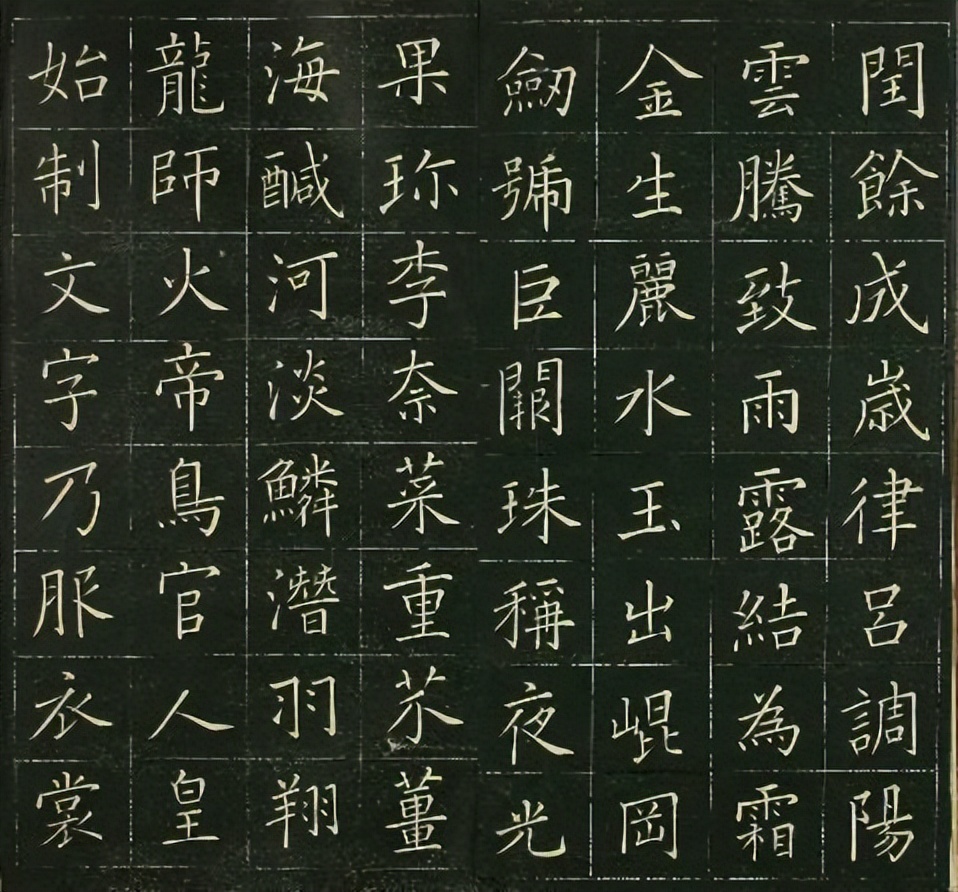 閏餘成嵗律呂調陽
雲騰致雨露結為霜
金生麗水玉出崐岡
劒號巨闕珠稱夜光
果珎李奈菜重芥薑
海醎河淡鱗潛羽翔
龍師火帝鳥官人皇
始制文字乃服衣裳